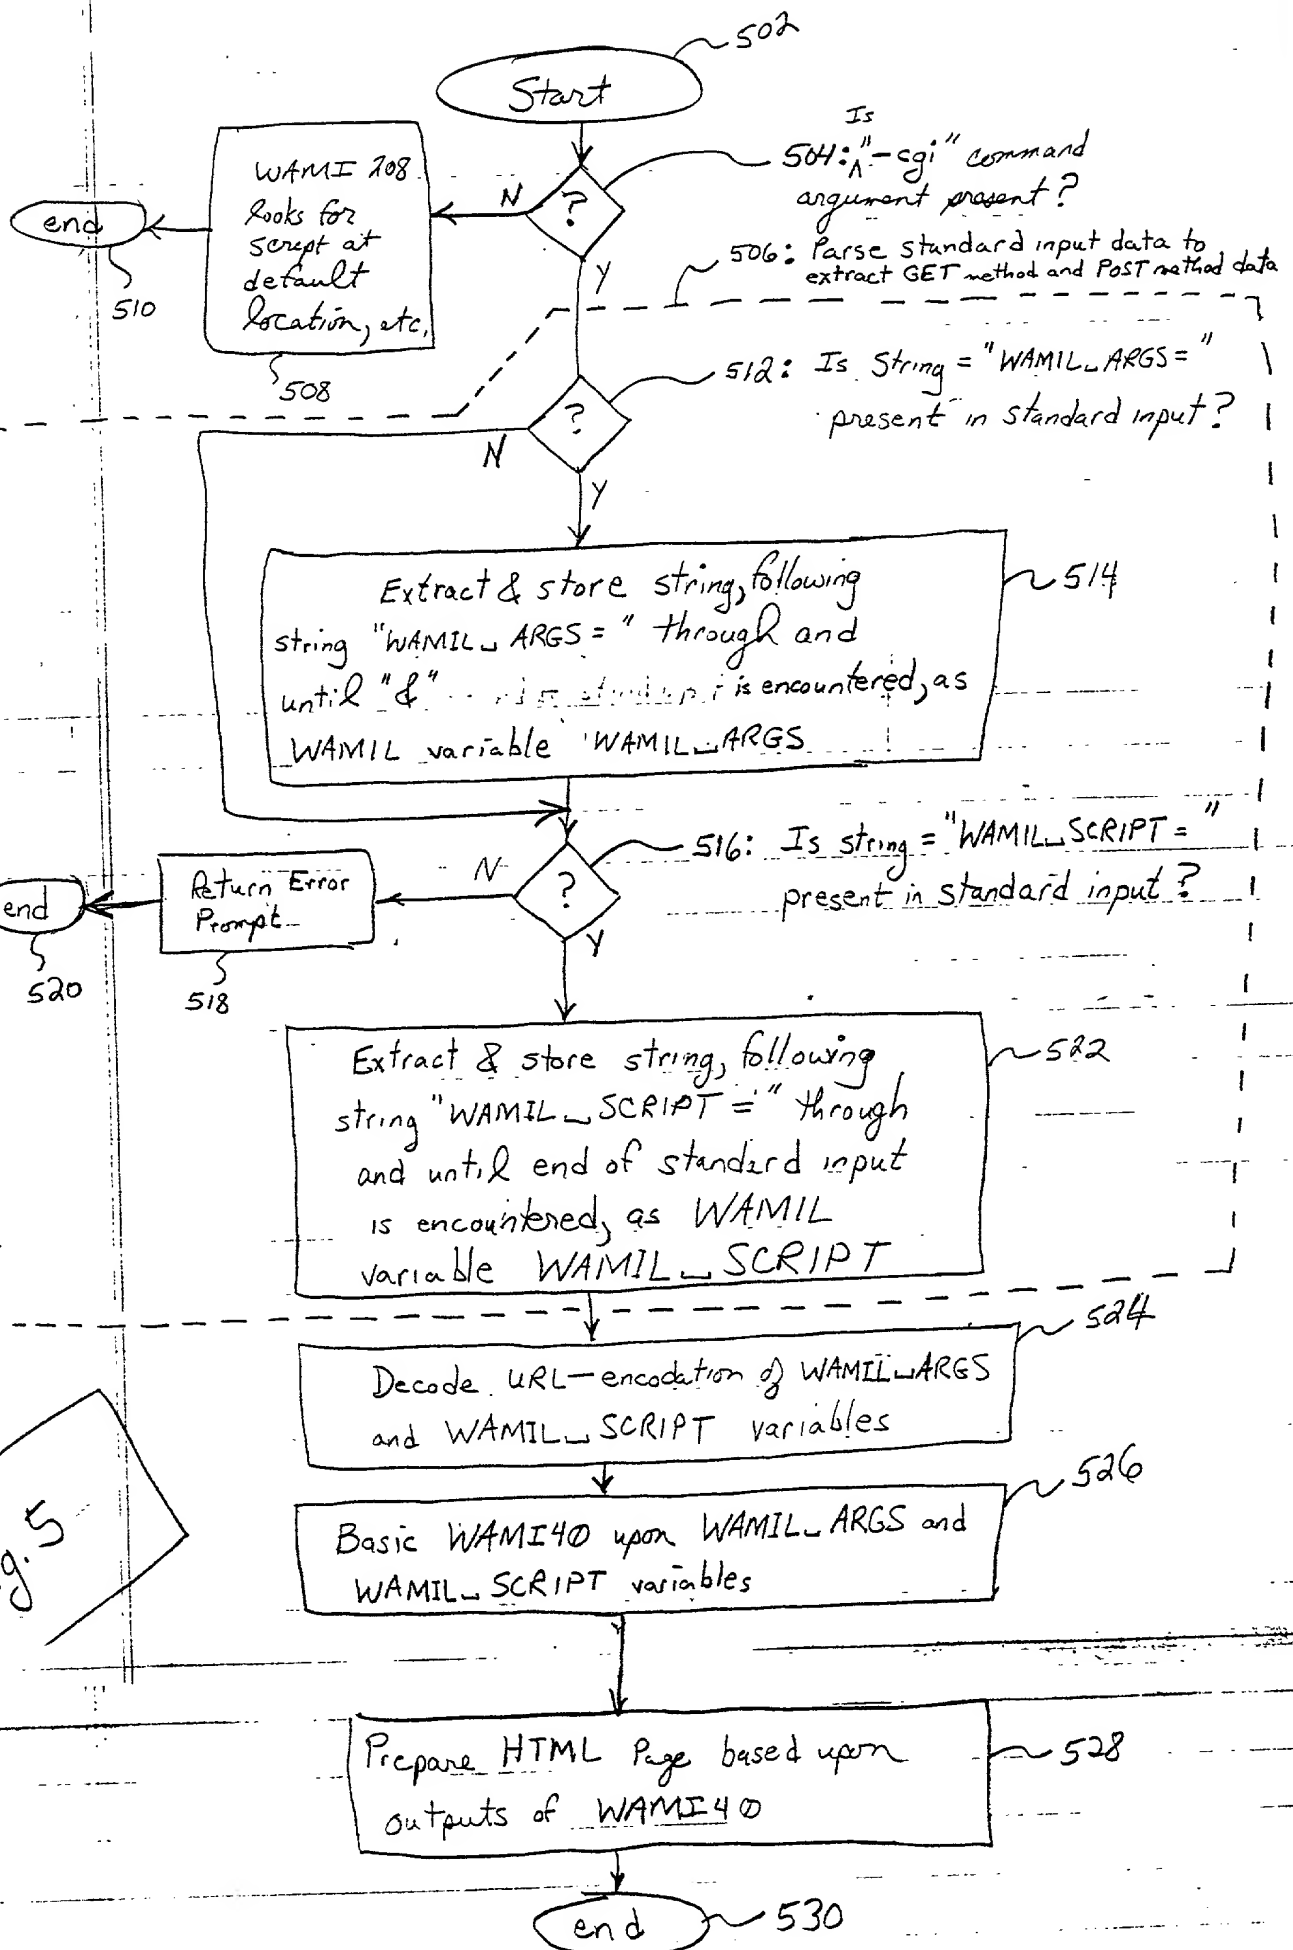 502
Start
Is
504: "-cgi" command
argument present?
?
N
Y
WAMI 208
looks for
script at
default
location, etc.
508
end
510
506: Parse standard input data to
extract GET method and POST method data
512: Is String = "WAMIL_ARGS="
present in standard input?
?
N
Y
Extract & store string, following
string "WAMIL_ARGS=" through and
until "&" is encountered, as
WAMIL variable WAMIL_ARGS
514
516: Is string = "WAMIL_SCRIPT="
present in standard input?
?
N
Y
Return Error
Prompt
518
end
520
Extract & store string, following
string "WAMIL_SCRIPT=" through
and until end of standard input
is encountered, as WAMIL
variable WAMIL_SCRIPT
522
524
Decode URL-encodation of WAMIL_ARGS
and WAMIL_SCRIPT variables
526
Basic WAMI40 upon WAMIL_ARGS and
WAMIL_SCRIPT variables
g. 5
Prepare HTML Page based upon
outputs of WAMI40
528
end
530